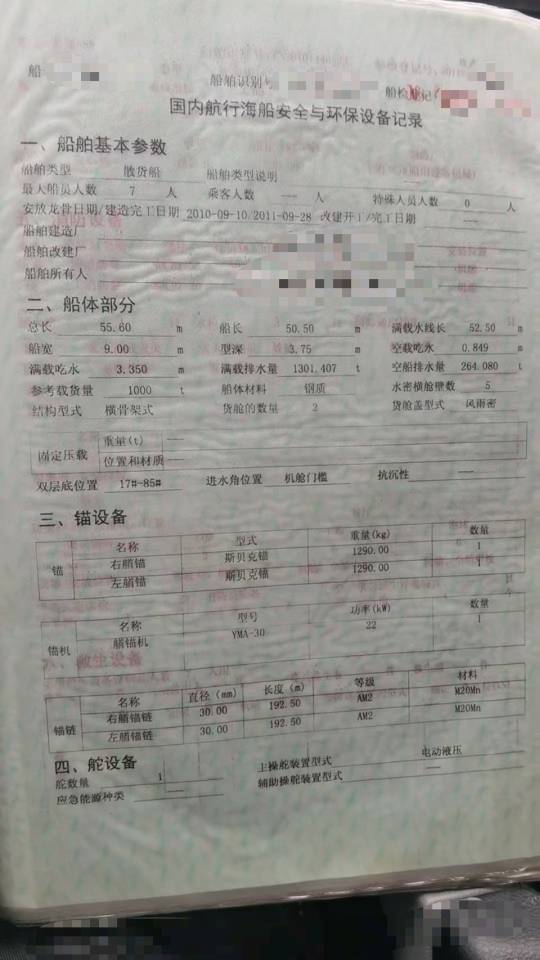 船
船舶识别号
船检登记
国内航行海船安全与环保设备记录
一、船舶基本参数
船舶类型 散货船 船舶类型说明 —
最大船员人数 7 人 乘客人数 — 人 特殊人员人数 0 人
安放龙骨日期/建造完工日期 2010-09-10/2011-09-28 改建开工/完工日期 —
船舶建造厂
船舶改建厂
船舶所有人
二、船体部分
总长 55.60 m 船长 50.50 m 满载水线长 52.50 m
船宽 9.00 m 型深 3.75 m 空载吃水 0.849 m
满载吃水 3.350 m 满载排水量 1301.407 t 空船排水量 264.080 t
参考载货量 1000 t 船体材料 钢质 水密横舱壁数 5
结构型式 横骨架式 货舱的数量 2 货舱盖型式 风雨密
固定压载 重量(t) —
位置和材质 —
双层底位置 17#-85# 进水角位置 机舱门槛 抗沉性 —
三、锚设备
锚 名称 型式 重量(kg) 数量
右艏锚 斯贝克锚 1290.00 1
左艏锚 斯贝克锚 1290.00 1
锚机 名称 型号 功率(kW) 数量
艏锚机 YMA-30 22 1
锚链 名称 直径(mm) 长度(m) 等级 材料
右艏锚链 30.00 192.50 AM2 M20Mn
左艏锚链 30.00 192.50 AM2 M20Mn
四、舵设备
舵数量 1 主操舵装置型式 电动液压
应急能源种类 — 辅助操舵装置型式 —